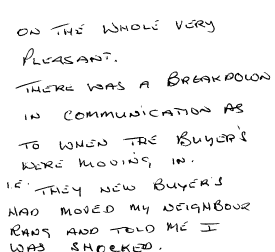 ON THE WHOLE VERY
PLEASANT.
THERE WAS A BREAKDOWN
IN COMMUNICATION AS
TO WHEN THE BUYER'S
WERE MOVING IN.
I.E. THEY NEW BUYER'S
HAD MOVED MY NEIGHBOUR
RANG AND TOLD ME I
WAS SHOCKED.